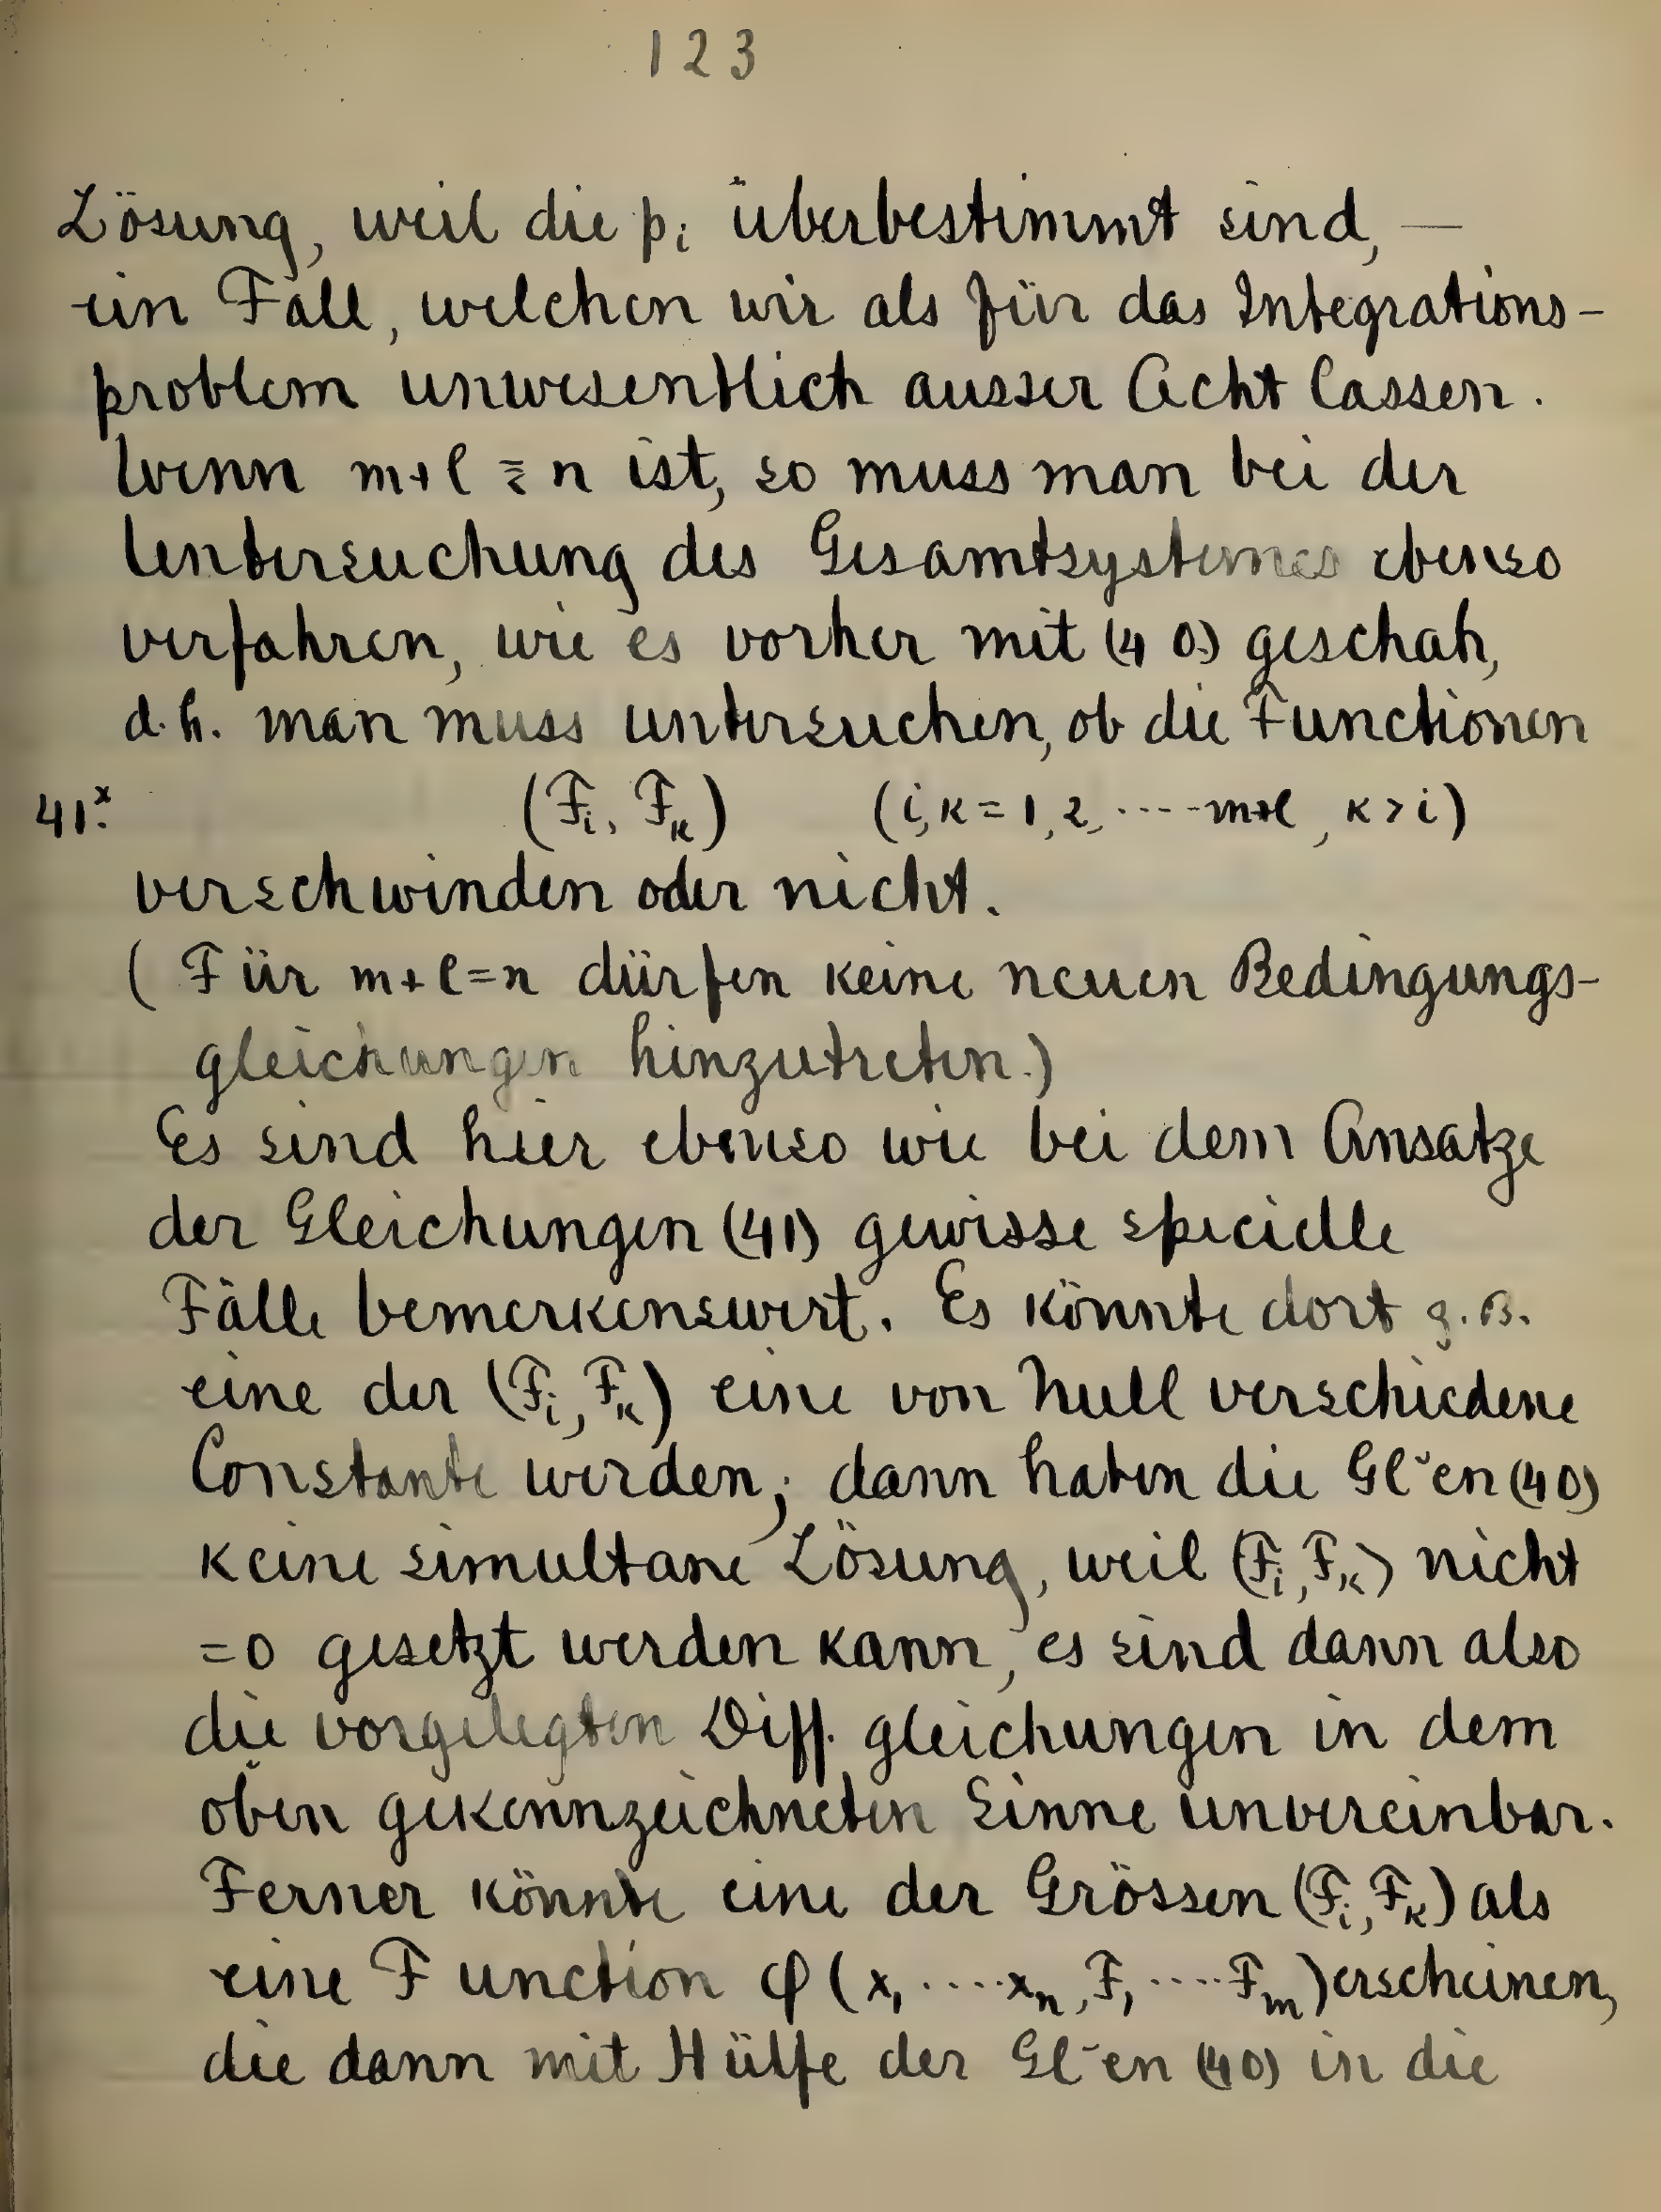 123
Lösung, weil die p_i überbestimmt sind, —
ein Fall, welchen wir als für das Integrations-
problem unwesentlich ausser Acht lassen.
Wenn m+l ≦ n ist, so muss man bei der
Untersuchung des Gesamtsystemes ebenso
verfahren, wie es vorher mit (40) geschah,
d.h. man muss untersuchen, ob die Functionen
41.ˣ (F_i, F_κ) (i,κ = 1, 2, ····· m+l, κ > i)
verschwinden oder nicht.
( Für m+l=n dürfen keine neuen Bedingungs-
gleichungen hinzutreten.)
Es sind hier ebenso wie bei dem Ansatze
der Gleichungen (41) gewisse specielle
Fälle bemerkenswert. Es könnte dort z.B.
eine der (F_i, F_κ) eine von Null verschiedene
Constante werden; dann haben die Gl˘en (40)
keine simultane Lösung, weil (F_i, F_κ) nicht
=0 gesetzt werden kann, es sind dann also
die vorgelegten Diff. gleichungen in dem
oben gekennzeichneten Sinne unvereinbar.
Ferner könnte eine der Grössen (F_i, F_κ) als
eine Function φ (x₁ ···· x_n, F₁ ···· F_m) erscheinen,
die dann mit Hülfe der Gl˘en (40) in die